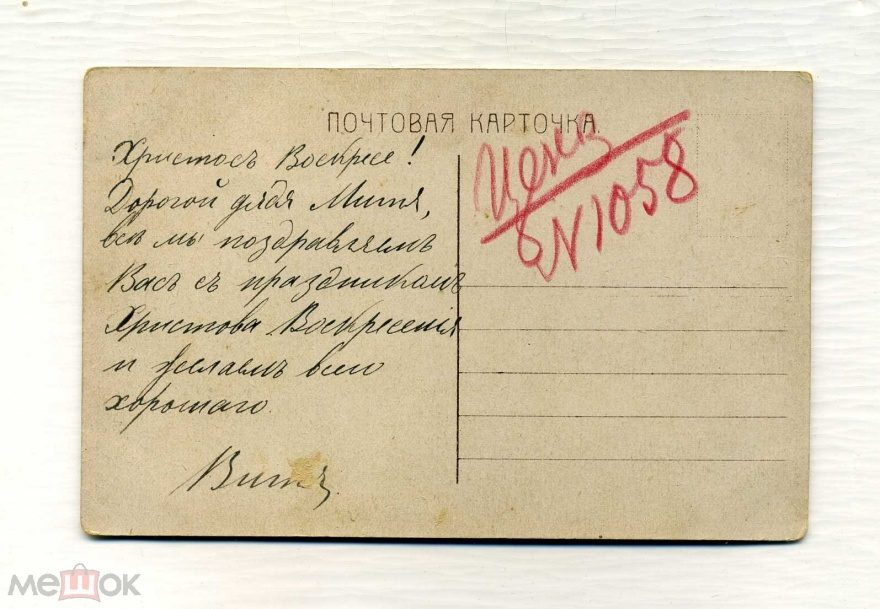 ПОЧТОВАЯ КАРТОЧКА.
Христосъ Воскресе!
Дорогой дядя Митя,
всѣ мы поздравляемъ
Васъ съ праздникомъ
Христова Воскресенія
и желаемъ всего
хорошаго.
Цена
N 1058
мешок